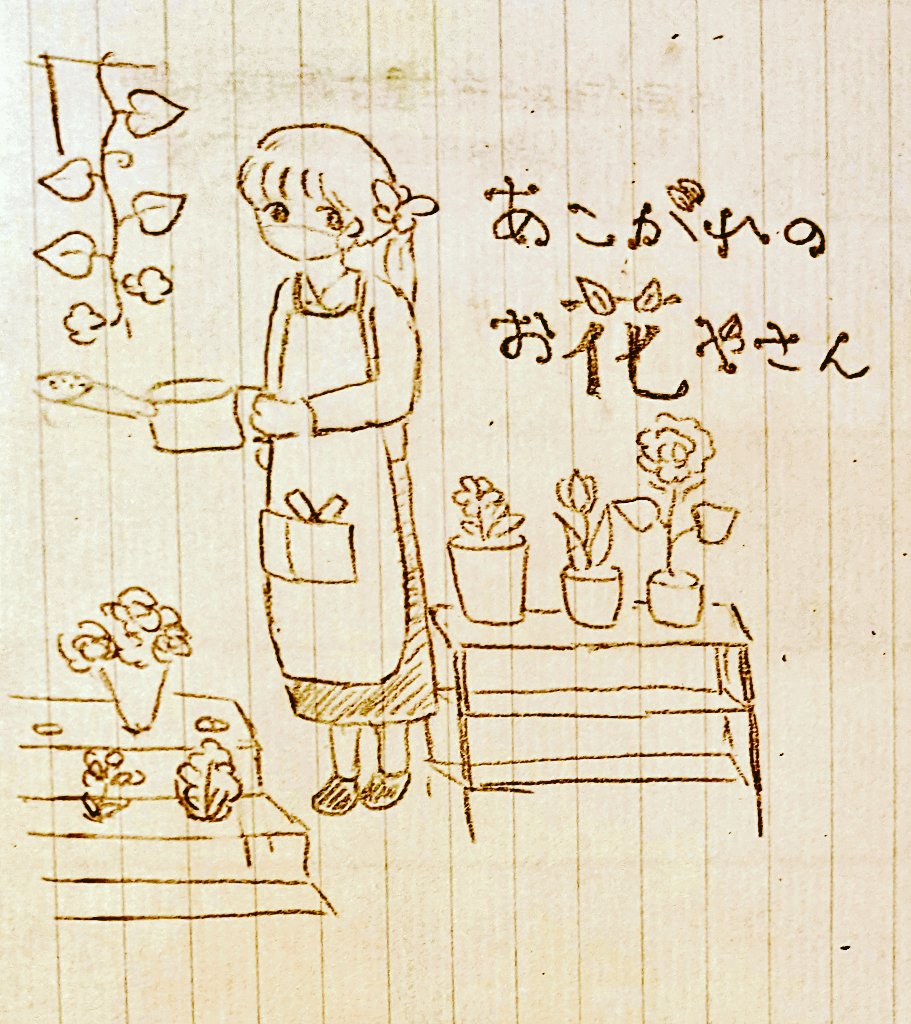 あこがれの
お花やさん